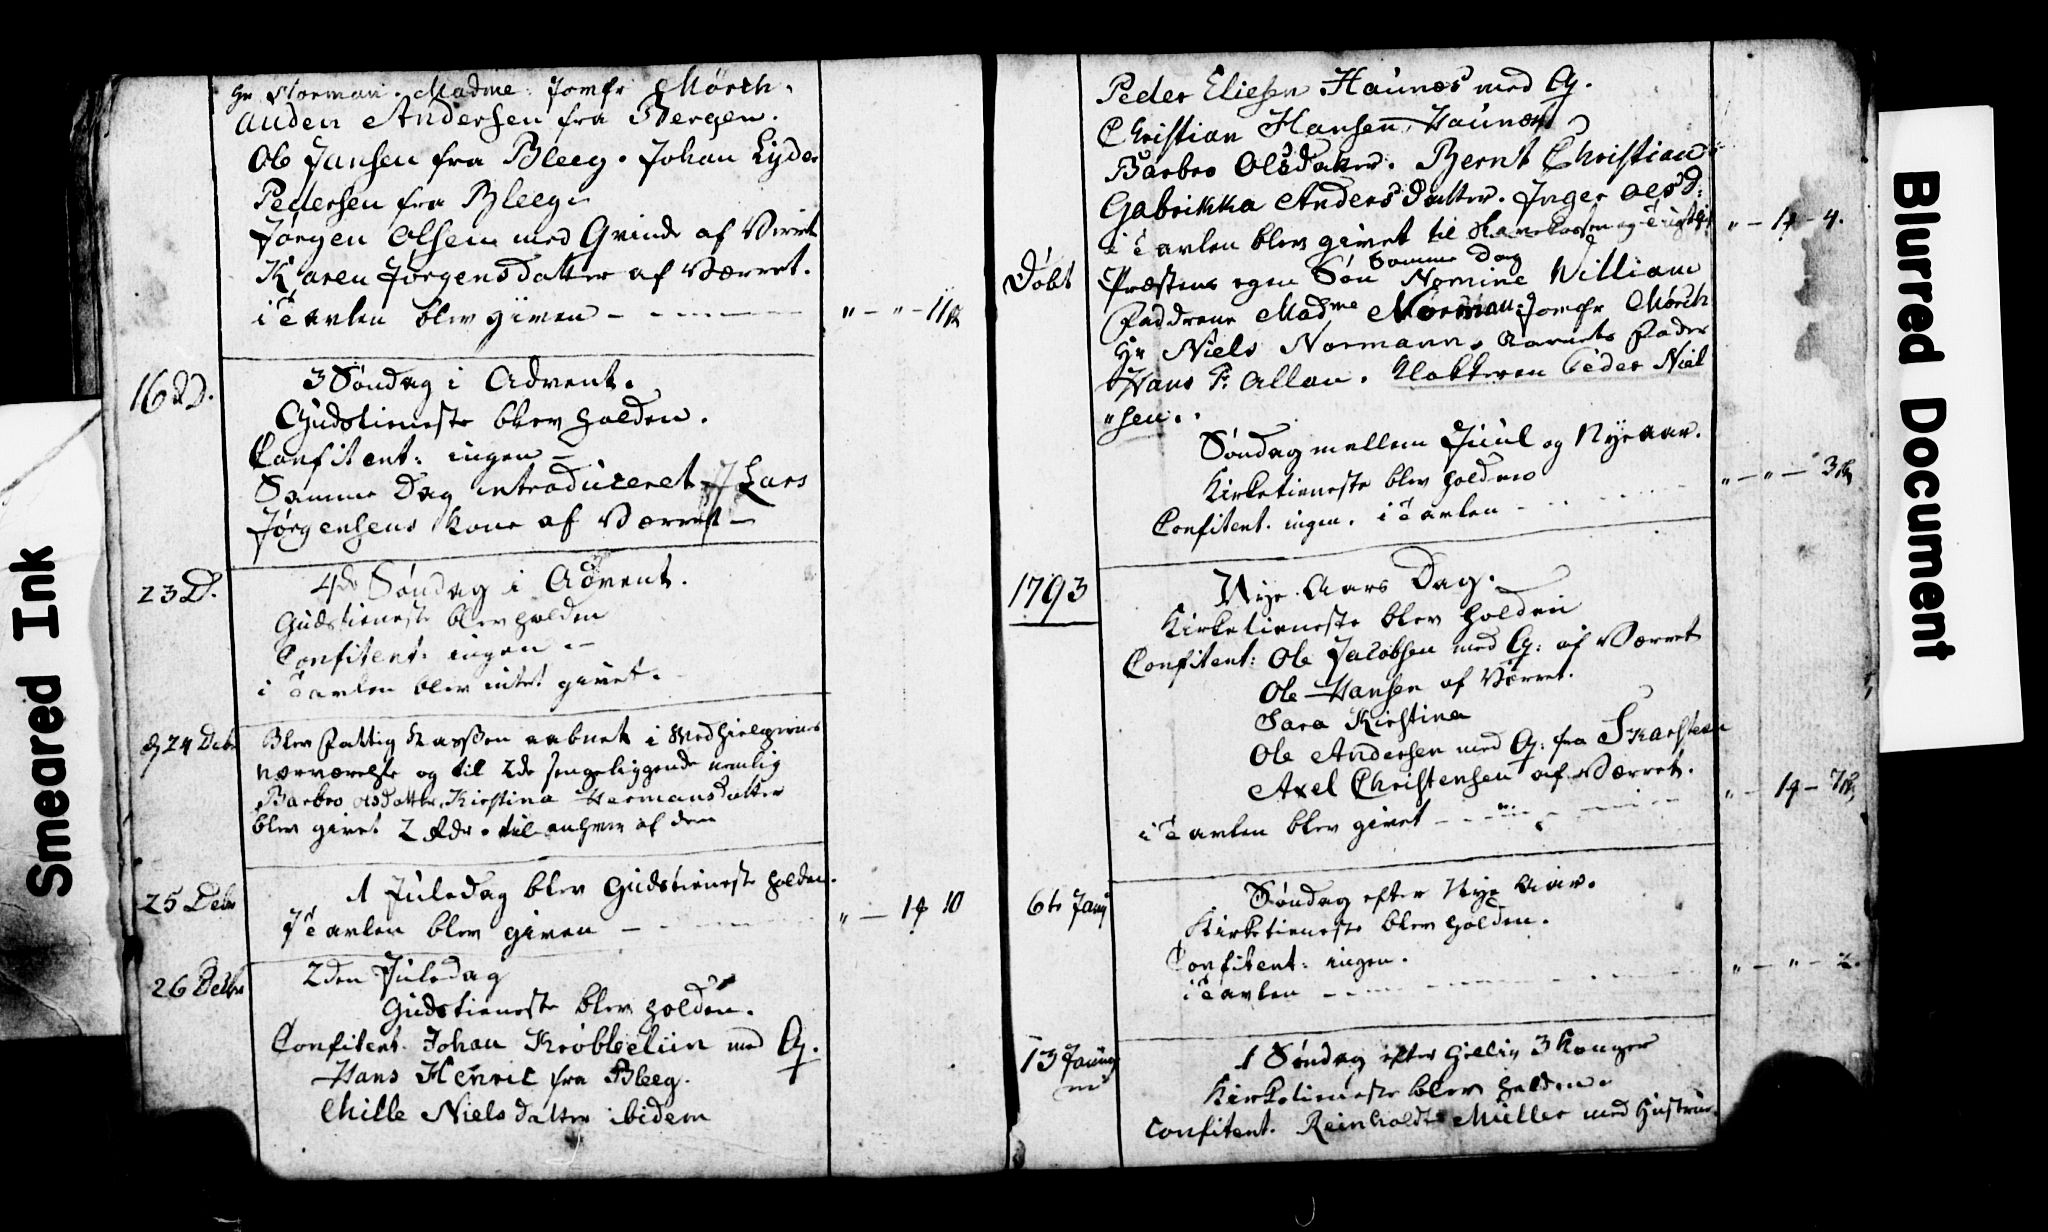 Hr Norman. Madme: Jomfr Mörch.
Auden Andersen fra Bergen.
Ole Jansen fra Bleeg. Johan Lyder
Pedersen fra Bleeg.
Jørgen Olsen med Qvinde af Verret
Karen Jørgensdatter af Værret.
i Tavlen blev given - - - - - " - " - 11 ß
16 DD. 3 Søndag i Advent.
Gudstieneste blev holden.
Confitent: ingen -
Samme Dag introduceret Lars
Jørgensens Kone af Værret -
23 D. 4de Søndag i Advent.
Gudstieneste blev holden
Confitent: ingen -
i Tavlen blev intet givet.
d 24 Debr Blev Fattig Kassen aabnet i Medhielperens
nærværelse og til 2de sengeliggende nemlig
Barbro Olsdatter, Kirstina Hermansdatter
blev givet 2 Rdr. til enhver af dem
25 Debr 1 Juledag blev Gudstieneste holden.
I Tavlen blev given - - - - " - 1 4 10
26 Debr 2den Juledag
Gudstieneste blev holden.
Confitent. Johan Krøbbelün med Q.
Hans Henric fra Bleeg.
Mille Nielsdatter ibidem
Peder Eliesen Haunæs med Q.
Christian Hansen, Haunæs
Barbro Olsdatter. Bernt Christian
Gabrikka Andersdatter. Inger Olsd:
i Tavlen blev givet til " - 1 4 - 4.
Samme Dag
Døbt Præstens egen Søn Nomine William
Faddrene Madme Norman: Jomfr Mörch
Hr Niels Normann. Barnets Fader
Hans P. Allan. Klokkeren Peder Niel
"sen.
Søndag mellem Juul og Nyeaar.
Kirketieneste blev holden
Confitent. ingen. i Tavlen - - - " - " - 3 ß
1793 Nye Aars Dag.
Kirketieneste blev holden
Confitent: Ole Jacobsen med Q: af Værret
Ole Hansen af Værret.
Sara Kirstina
Ole Andersen med Q: fra Skarsteen
Axel Christensen af Værret.
i Tavlen blev givet - - - - " - 1 4 - 7 ß
6te Janu Søndag efter Nye Aar.
Kirketieneste blev holden.
Confitent: ingen.
i Tavlen - - - - - " - " - 2.
13 Janua
rii
1 Søndag efter Hellig 3 Konger
Kirketieneste blev holden.
Confitent. Reinholdt Müller med Hustrue.
Smeared Ink
Blurred Document